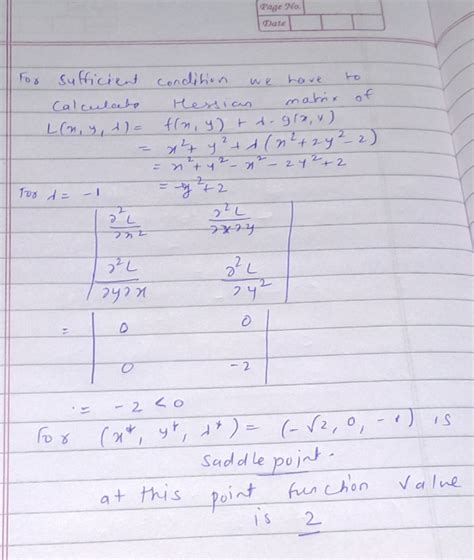 Page No.
Date
For sufficient condition we have to
calculate Hessian matrix of
L(x, y, λ) = f(x, y) + λ · g(x, y)
= x² + y² + λ(x² + 2y² - 2)
= x² + y² - x² - 2y² + 2
For λ = -1 = -y² + 2
∂²L/∂x² ∂²L/∂x∂y
∂²L/∂y∂x ∂²L/∂y²
= | 0 0 |
| 0 -2 |
= -2 < 0
For (x*, y*, λ*) = (-√2, 0, -1) is
saddle point.
at this point function value
is 2